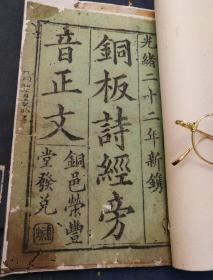 光緒二十二年新鐫
銅板詩經旁
音正文
銅邑榮豐
堂發兌